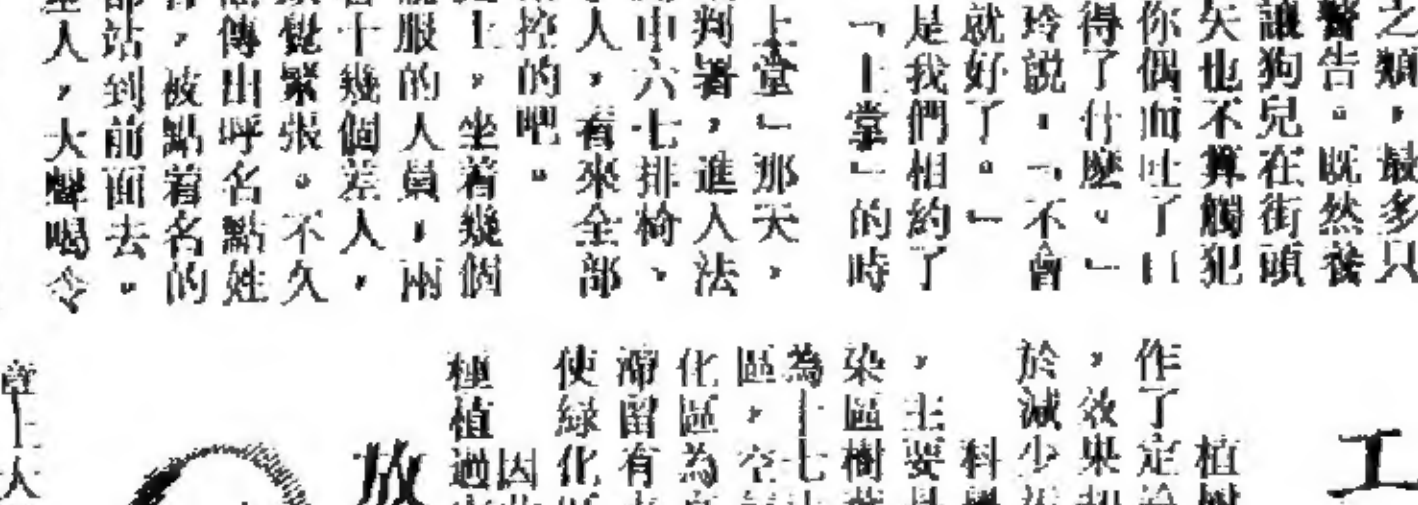 之類，最多只
警告。既然養
讓狗兒在街頭
矢也不算觸犯
你偶而吐了口
得了什麼。」
玲說。「不會
就好了。」
是我們相約了
「上堂」的時
上堂」那天，
判署，進入法
中六七排椅，
人，看來全部
控的吧。
上，坐着幾個
服的人員，兩
十幾個差人，
覺緊張。不久
傳出呼名點姓
，被點着名的
都站到前面去。
人，大聲喝令
工
植樹
作了定論
，效果
於減少
科學
，主要是
染區樹
為十七
區，空氣
化區為
滯留有
使綠化
因
種植過
放
上大